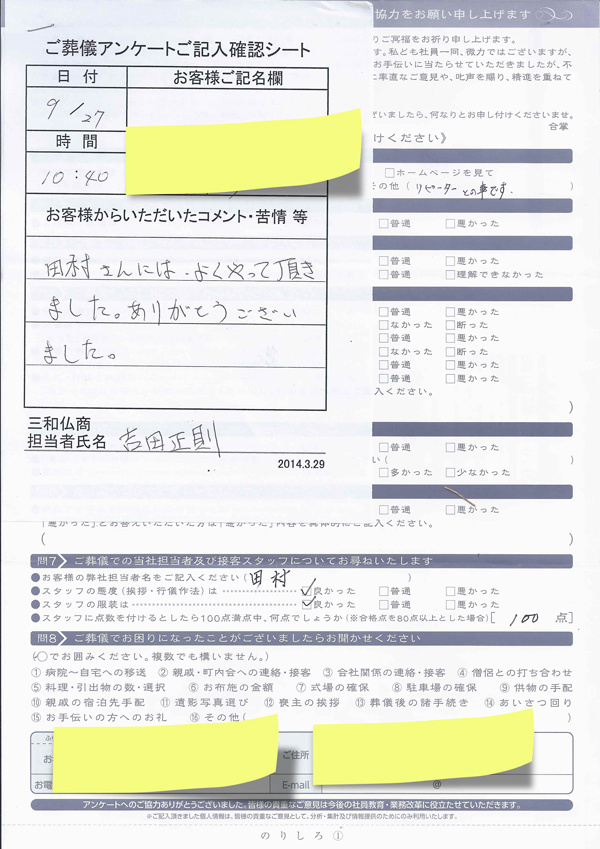 ご葬儀アンケートご記入確認シート
日付
お客様ご記名欄
9/27
時間
10:40
お客様からいただいたコメント・苦情 等
田村さんには、よくやって頂き
ました。ありがとうござい
ました。
三和仏商
担当者氏名 吉田正則
2014.3.29
協力をお願い申し上げます
ご冥福をお祈り申し上げます。
す。私ども社員一同、微力ではございますが、
お手伝いに当たらせていただきましたが、不
率直なご意見や、叱声を賜り、精進を重ねて
いましたら、何なりとお申し付けくださいませ。
合掌
けください》
□ホームページを見て
その他(リピーターとの事です。
□普通 □悪かった
□普通 □悪かった
□普通 □理解できなかった
□普通 □悪かった
□なかった □断った
□普通 □悪かった
□なかった □断った
□普通 □悪かった
入ください。
)
□普通 □悪かった
い( )
□多かった □少なかった
□普通 □悪かった
「悪かった」とお答えいただいた方は「悪かった」内容を具体的にご記入ください。
( )
問7 ご葬儀での当社担当者及び接客スタッフについてお尋ねいたします
●お客様の弊社担当者名をご記入ください(田村 )
●スタッフの態度(挨拶・行儀作法)は ☑良かった □普通 □悪かった
●スタッフの服装は ☑良かった □普通 □悪かった
●スタッフに点数を付けるとしたら100点満点中、何点でしょうか(※合格点を80点以上とした場合)[ 100 点]
問8 ご葬儀でお困りになったことがございましたらお聞かせください
(○でお囲みください。複数でも構いません。)
① 病院~自宅への移送 ② 親戚・町内会への連絡・接客 ③ 会社関係の連絡・接客 ④ 僧侶との打ち合わせ
⑤ 料理・引出物の数・選択 ⑥ お布施の金額 ⑦ 式場の確保 ⑧ 駐車場の確保 ⑨ 供物の手配
⑩ 親戚の宿泊先手配 ⑪ 遺影写真選び ⑫ 喪主の挨拶 ⑬ 葬儀後の諸手続き ⑭ あいさつ回り
⑮ お手伝いの方へのお礼 ⑯ その他( )
ご住所
お電
E-mail @
アンケートへのご協力ありがとうございました。皆様の貴重なご意見は今後の社員教育・業務改革に役立たせていただきます。
※ご記入頂きました個人情報は、皆様の貴重なご意見として、分析・集計及び情報提供のためにのみ利用いたします。
のりしろ①